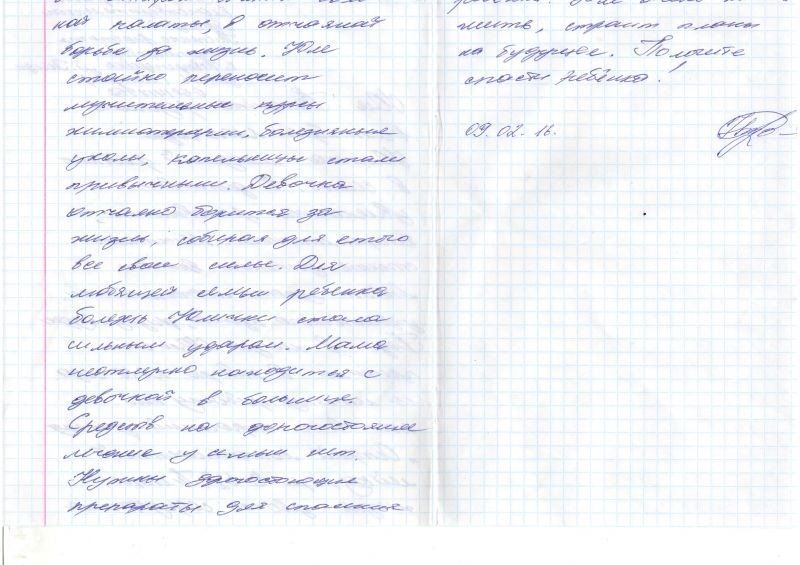 ной палаты, в отчаяной
борьбе за жизнь. Юле
стойко переносит
мучительные курсы
химиотерапии, болезненные
уколы, капельницы стали
привычными. Девочка
отчаяно борится за
жизнь, собирая для этого
все свои силы. Для
любящей семьи ребенка
болезнь Юлички стала
сильным ударом. Мама
неотлучно находится с
девочкой в больнице.
Средств на дорогостоящие
лечение у семьи нет.
Нужны дрогостоющие
препараты для спасения
жить, строит планы
на будущее. Помогите
спасти ребёнка!
09.02.16.